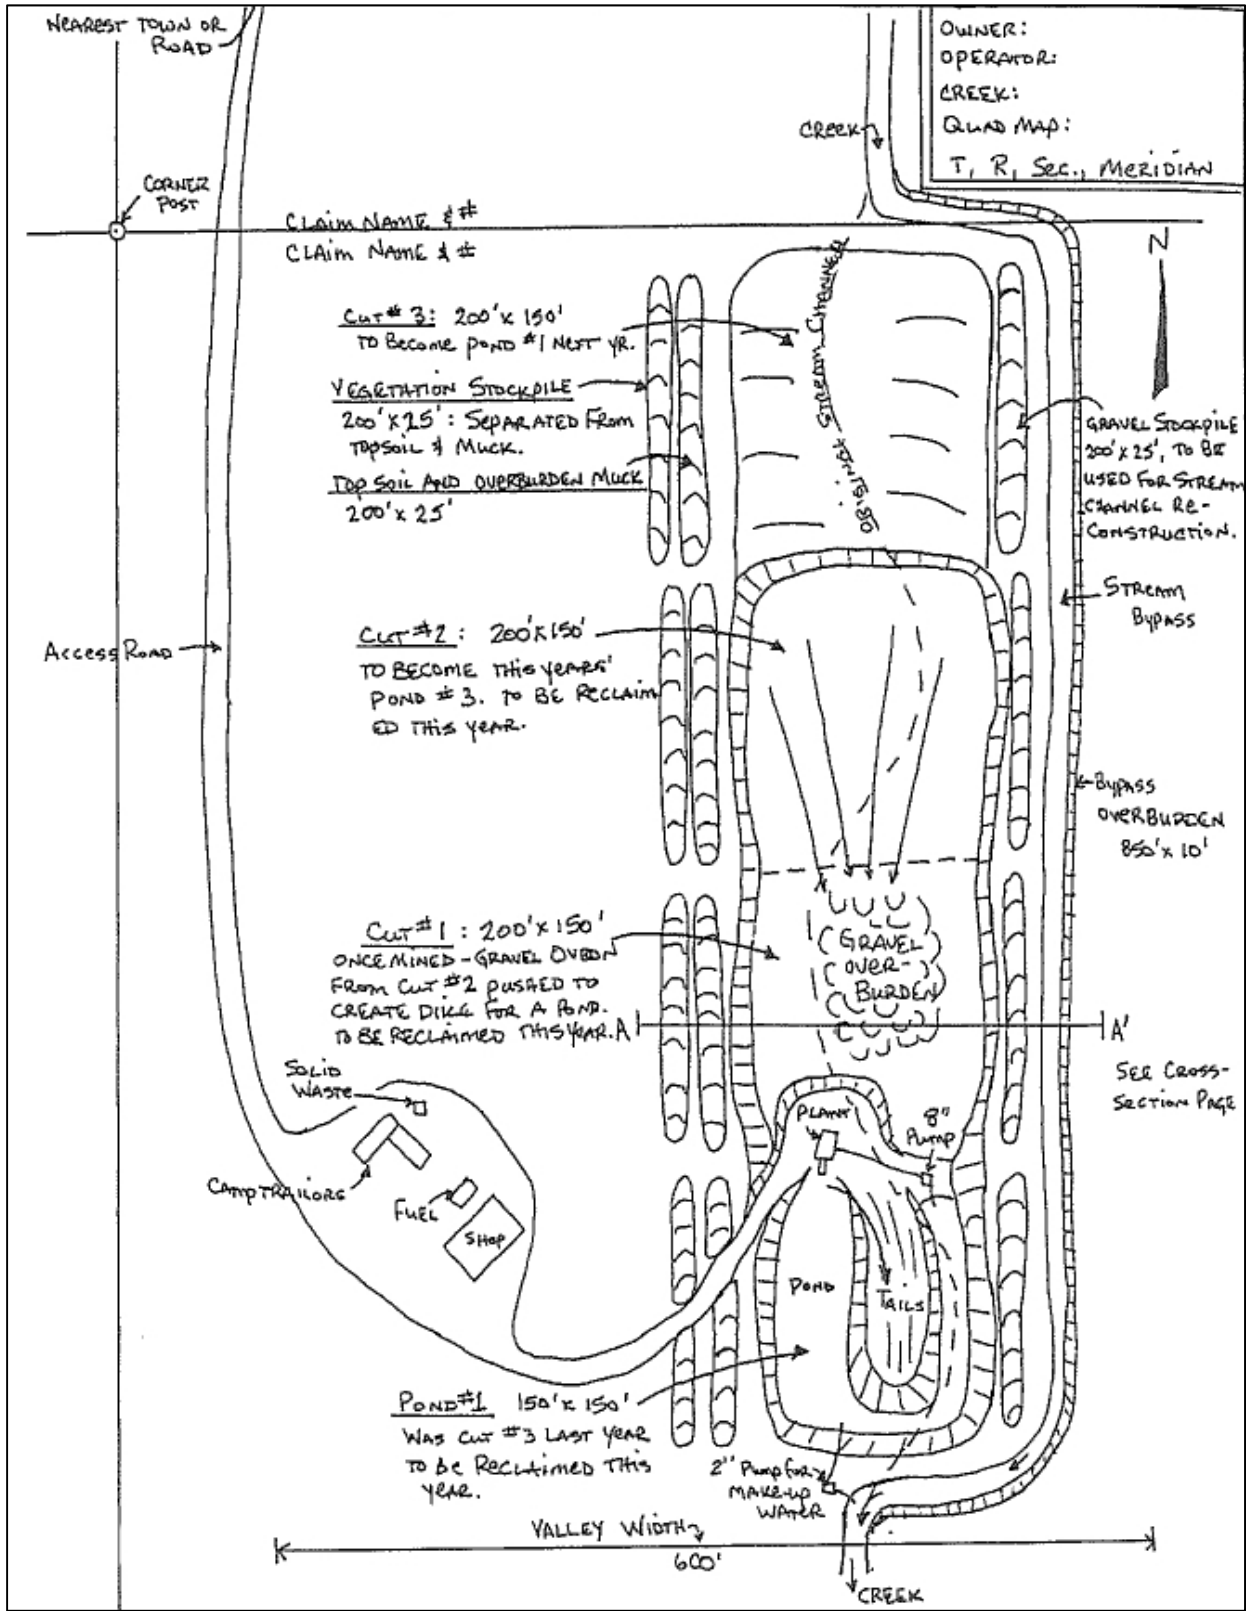 NEAREST TOWN OR
ROAD
OWNER:
OPERATOR:
CREEK:
QUAD MAP:
T, R, SEC., MERIDIAN
CREEK
CORNER
POST
CLAIM NAME & #
CLAIM NAME & #
N
CUT # 3: 200' x 150'
TO BECOME POND #1 NEXT YR.
VEGETATION STOCKPILE
200' x 25' : SEPARATED FROM
TOPSOIL & MUCK.
TOP SOIL AND OVERBURDEN MUCK
200' x 25'
ORIGINAL STREAM CHANNEL
GRAVEL STOCKPILE
200' x 25', TO BE
USED FOR STREAM
CHANNEL RE-
CONSTRUCTION.
STREAM
BYPASS
ACCESS ROAD
CUT #2 : 200' x 150'
TO BECOME THIS YEARS'
POND # 3. TO BE RECLAIM
ED THIS YEAR.
BYPASS
OVERBURDEN
850' x 10'
CUT #1 : 200' x 150'
ONCE MINED - GRAVEL OVBDN
FROM CUT #2 PUSHED TO
CREATE DIKE FOR A POND.
TO BE RECLAIMED THIS YEAR.
GRAVEL
OVER-
BURDEN
A
A'
SEE CROSS-
SECTION PAGE
SOLID
WASTE
CAMP TRAILORS
FUEL
SHOP
PLANT
8"
PUMP
POND
TAILS
POND #1 150' x 150'
WAS CUT #3 LAST YEAR
TO BE RECLAIMED THIS
YEAR.
2" PUMP FOR
MAKE-UP
WATER
VALLEY WIDTH
600'
CREEK